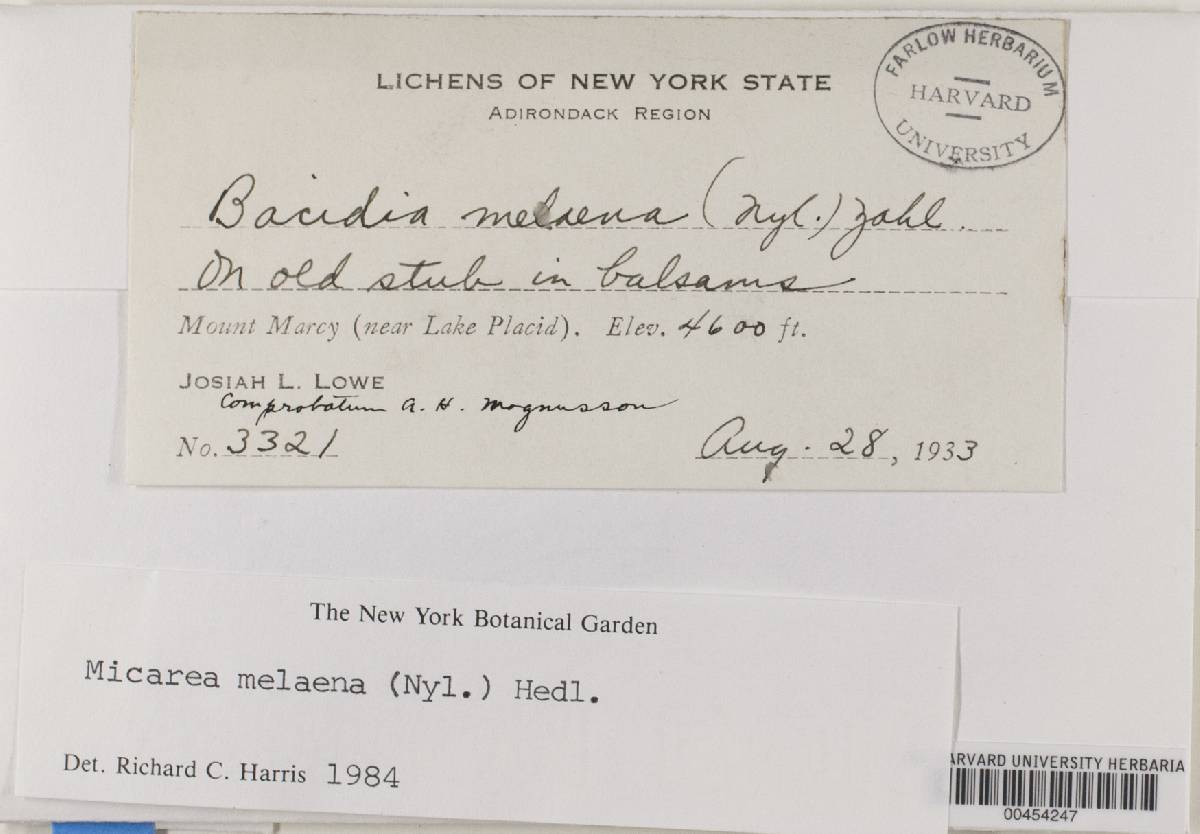 LICHENS OF NEW YORK STATE
ADIRONDACK REGION
FARLOW HERBARIUM
HARVARD
UNIVERSITY
Bacidia melaena (Nyl.) Zahl.
On old stub in balsams
Mount Marcy (near Lake Placid). Elev. 4600 ft.
JOSIAH L. LOWE
Comprobatum A. H. Magnusson
No. 3321
Aug. 28, 1933
The New York Botanical Garden
Micarea melaena (Nyl.) Hedl.
Det. Richard C. Harris 1984
ARVARD UNIVERSITY HERBARIA
00454247